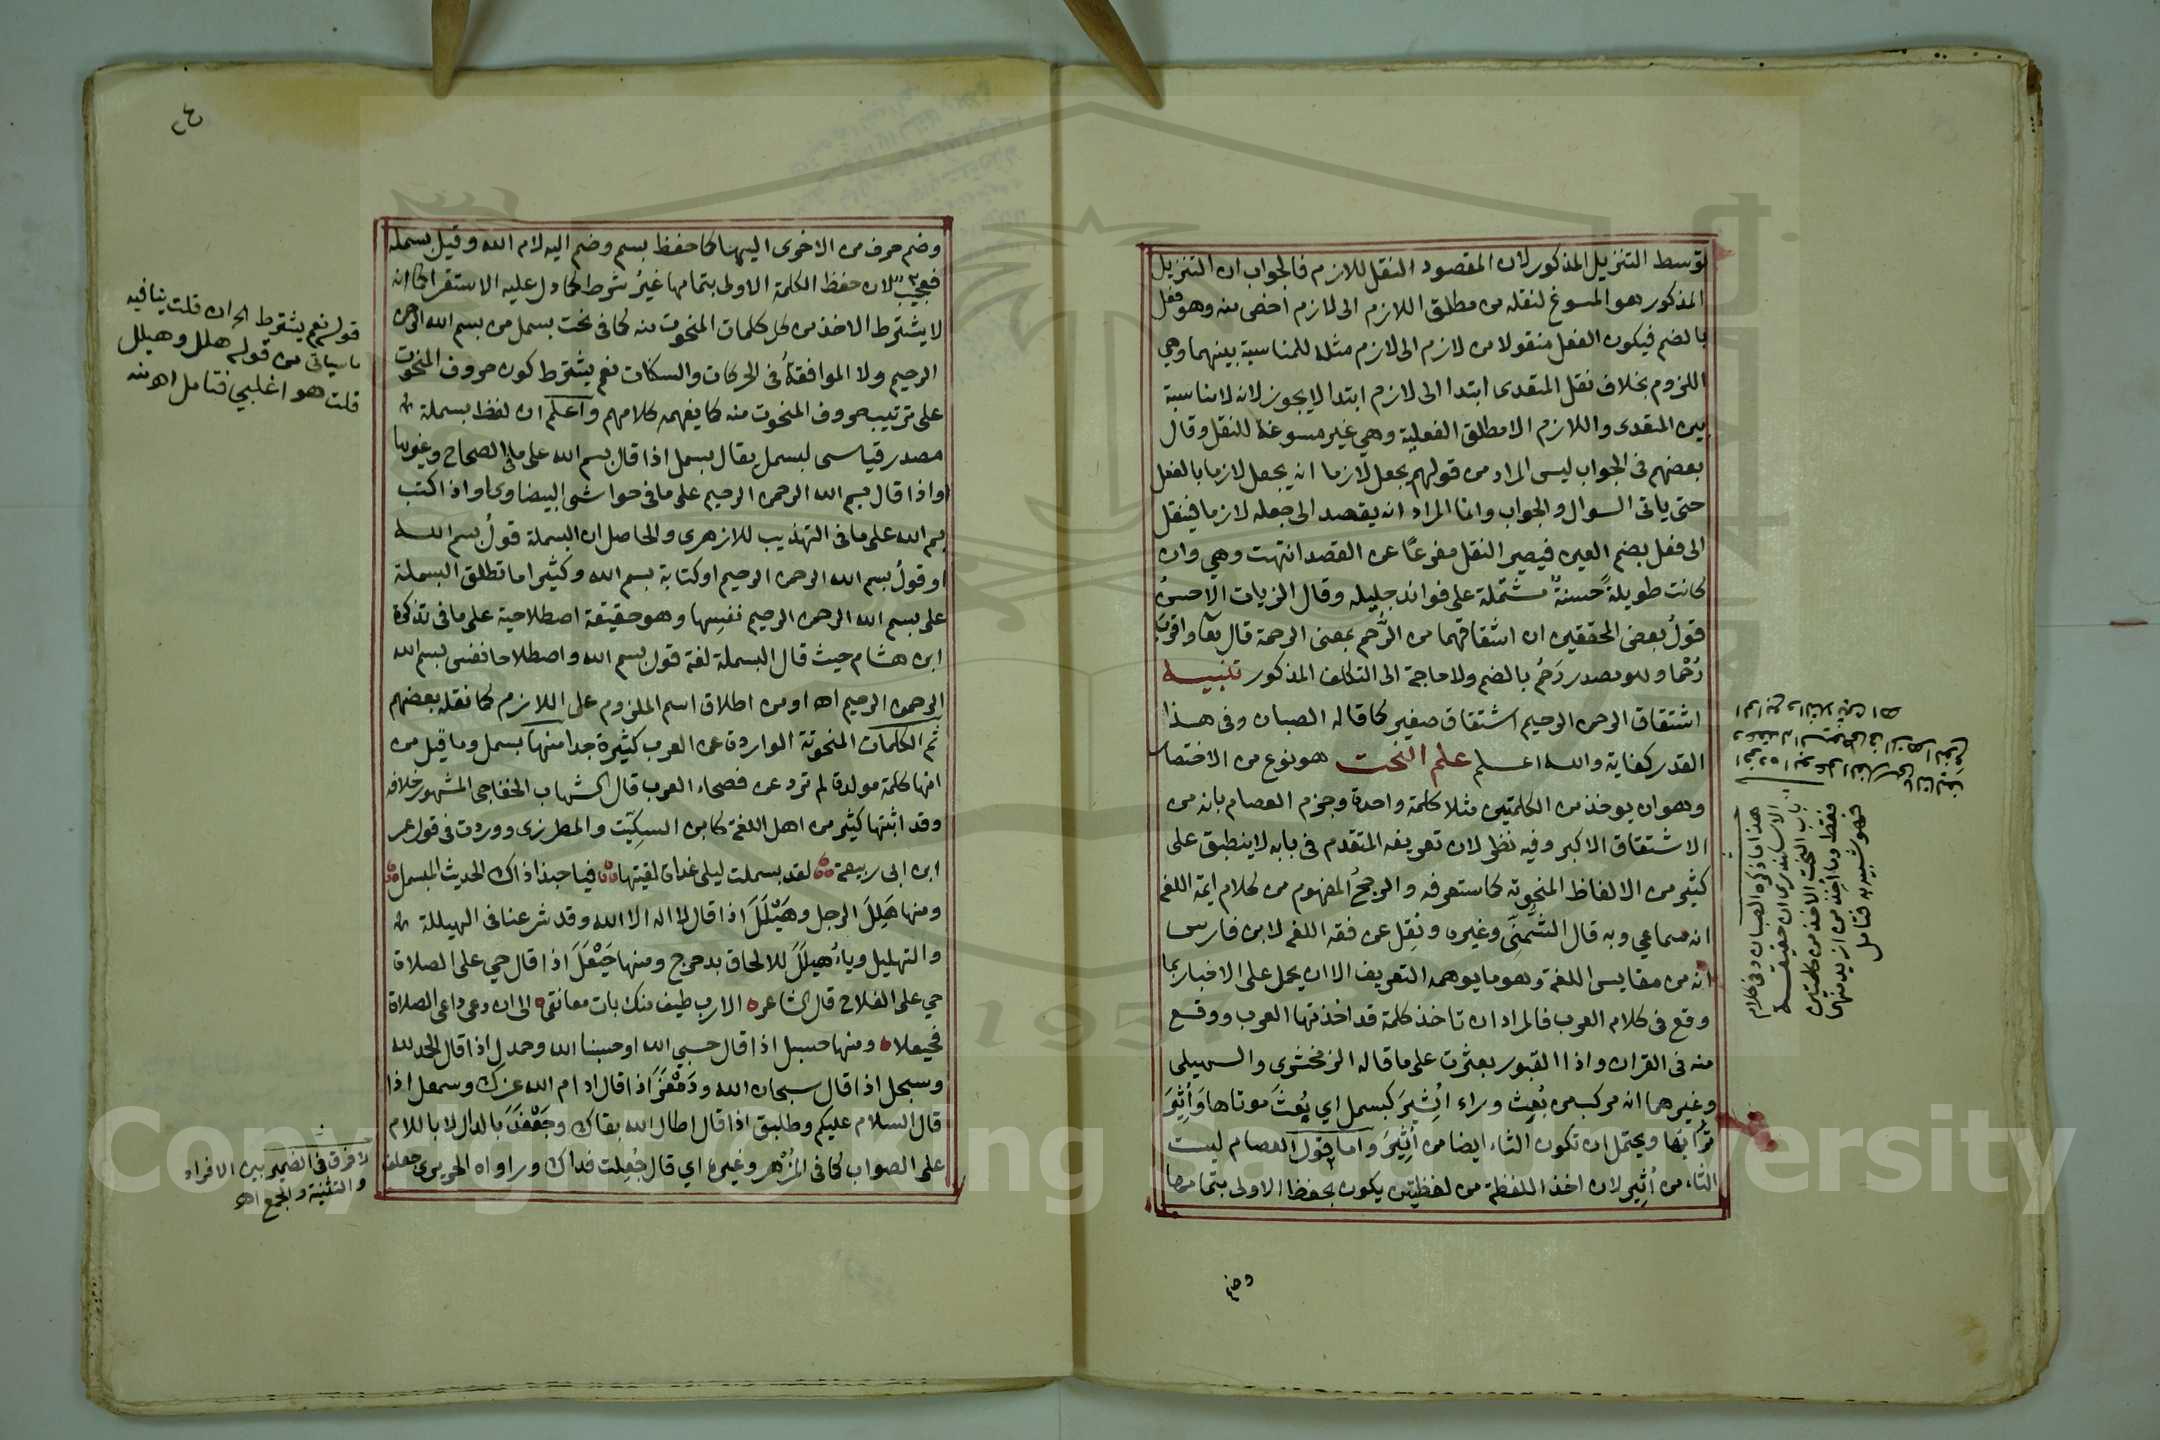 توسط التنزيل المذكور لان المقصود النقل للازم فالجواب ان التنزيل
المذكور هو المسوغ لنقله من مطلق اللازم الى لازم اخص منه وهو فعل
بالضم فيكون الفعل منقولا من لازم الى لازم مثله للمناسبة بينهما وهي
اللزوم بخلاف نقل المتعدى ابتدا الى لازم ابتدا لا يجوز لانه لا مناسبة
بين المتعدى واللازم الا مطلق الفعلية وهي غير مسوغة للنقل وقال
بعضهم فى الجواب ليس المراد من قولهم يجعل لازما انه يجعل لازما بالفعل
حتى ياتى السوال والجواب وانما المراد انه يقصد الى جعله لازما فينقل
الى فعل بضم العين فيصير النقل مفرعًا عن القصد انتهت وهي وان
كانت طويلةً حسنةٌ مشتملة على فوائد جليله وقال الزيات الاحسنُ
قولُ بعض المحققين ان اشتقاقهما من الرُّحم بمعنى الرحمة قال تعا واقربَ
رُحْما وهو مصدر رَحُم بالضم ولا حاجة الى التكلف المذكور تنبيه
اشتقاق الرحمن الرحيم اشتقاق صغير كما قاله الصبان وفى هذا
القدر كفاية والله اعلم علم النحت هو نوع من الاختصار
وهو ان يوخذ من الكلمتين مثلا كلمة واحدة وجزم العصام بانه من
الاشتقاق الاكبر وفيه نظر لان تعريفه المتقدم فى بابه لا ينطبق على
كثير من الالفاظ المنحوتة كما ستعرفه والوجهُ المفهوم من كلام ايمة اللغة
انه سماعي وبه قال الشُّمنِّي وغيره ونُقِل عن فقه اللغة لابن فارس
انه من مقايس اللغة وهو ما يوهمه التعريف الا ان يحمل على الاخبار بما
وقع فى كلام العرب فالمراد ان تاخذ كلمة قد اخذتها العرب ووقع
منه فى القران واذا القبور بعثرت على ما قاله الزمخشرى والسهيلى
وغيرهما انه مركب من بُعِث وراء اُثِيْرَ كبسمل اي بُعِثَ موتاها وَأُثِيْرَ
ترابُها ويحتمل ان تكون الثاء ايضا من أُثِيْرَ واما قول العصام ليست
الثاء من أُثِير لان اخذ اللفظة من لفظتين يكون بحفظ الاولى بتمامها
وضم
هذا ما ذكره الصبان وفى كلام
فقط وما اخذ من ازيد منها
فهو شبيه به فتامل
وضم حرف من الاخرى اليها كما حفظ بسم وضم اليه لام الله وقيل بسمله
فعجيب لان حفظ الكلمة الاولى بتمامها غيرُ شرط كما دل عليه الاستقرا كما انه
لا يشترط الاخذ من كل كلمات المنحوت منه كما فى نحت بسمل من بسم الله الرحمن
الرحيم ولا الموافقةُ فى الحركات والسكنات نعم يشترط كون حروف المنحوت
على ترتيب حروف المنحوت منه كما يفهمه كلامهم واعلم ان لفظ بسملة
مصدر قياسى لبسمل يقال بسمل اذا قال بسم الله على ما فى الصحاح وغيرها
واذا قال بسم الله الرحمن الرحيم على ما فى حواشى البيضاوى او اذا كتب
بسم الله على ما فى التهذيب للازهرى والحاصل ان البسملة قولُ بسم الله
او قولُ بسم الله الرحمن الرحيم او كتابة بسم الله وكثيرا ما تطلق البسملة
على بسم الله الرحمن الرحيم نفسِها وهو حقيقة اصطلاحية على ما فى تذكرة
ابن هشام حيث قال البسملة لغة قول بسم الله واصطلاحا نفس بسم الله
الرحمن الرحيم اه او من اطلاق اسم الملزوم على اللازم كما نقله بعضهم
ثم الكلمات المنحوتة الواردة عن العرب كثيرة جدا منها بسمل وما قيل من
انها كلمة مولدة لم ترد عن فصحاء العرب قال الشهاب الخفاجى المشهور خلافه
وقد اثبتها كثير من اهل اللغة كابن السِكِّيت والمطرزى ووردت فى قول عمر
ابن ابى ربيعة لقد بسملت ليلى غداة لقيتها فيا حبذا ذاك الحديث المبسمل
ومنها هَللَ الرجل وهَيْلَلَ اذا قال لا اله الا الله وقد شرعنا فى الهيللة
والتهليل وياءُ هيللَ للالحاق بدحرج ومنها حَيْعَلَ اذا قال حي على الصلاة
حي على الفلاح قال الشاعر الا رب طيف منك بات معانقى الى ان دعى داعى الصلاة
فحيعلا ومنها حسبل اذا قال حسبي الله او حسبنا الله وحمدل اذا قال الحمد لله
وسبحل اذا قال سبحان الله ودَمْعَزَ اذا قال ادام الله عزك وسمعل اذا
قال السلام عليكم وطلبق اذا قال اطال الله بقاك وجَعْفَدَ بالدال لا باللام
على الصواب كما فى المُزْهر وغيره اي قال جُعِلت فداك ورواه الحريرى جعلف
قوله نعم يشترط الخ ان قلت ينافيه
ما سياتى من قوله هلل وهيلل
قلت هو اغلبي فتامل اه منه
لا فرق فى الضمير بين الافراد
والتثنية والجمع اه
1957
Copyright © King Saud University